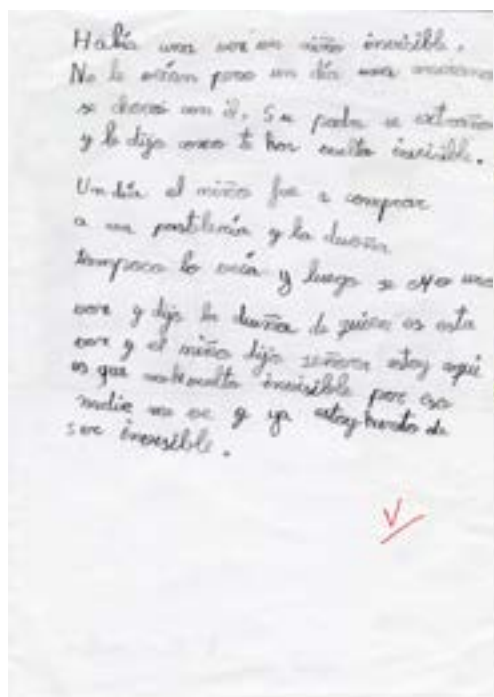 Había una vez un niño invisible.
No le veían pero un día una
se chocó con él. Su padre se extraño
y le dijo como te has vuelto invisible.
Un día el niño fue a comprar
a una pastelería y la dueña
tampoco lo veía y luego se oyo una
voz y dijo la dueña de quién es esta
voz y el niño dijo señora estoy aquí
es que me vuelto invisible por eso
nadie me ve y ya estoy harto de
ser invisible.